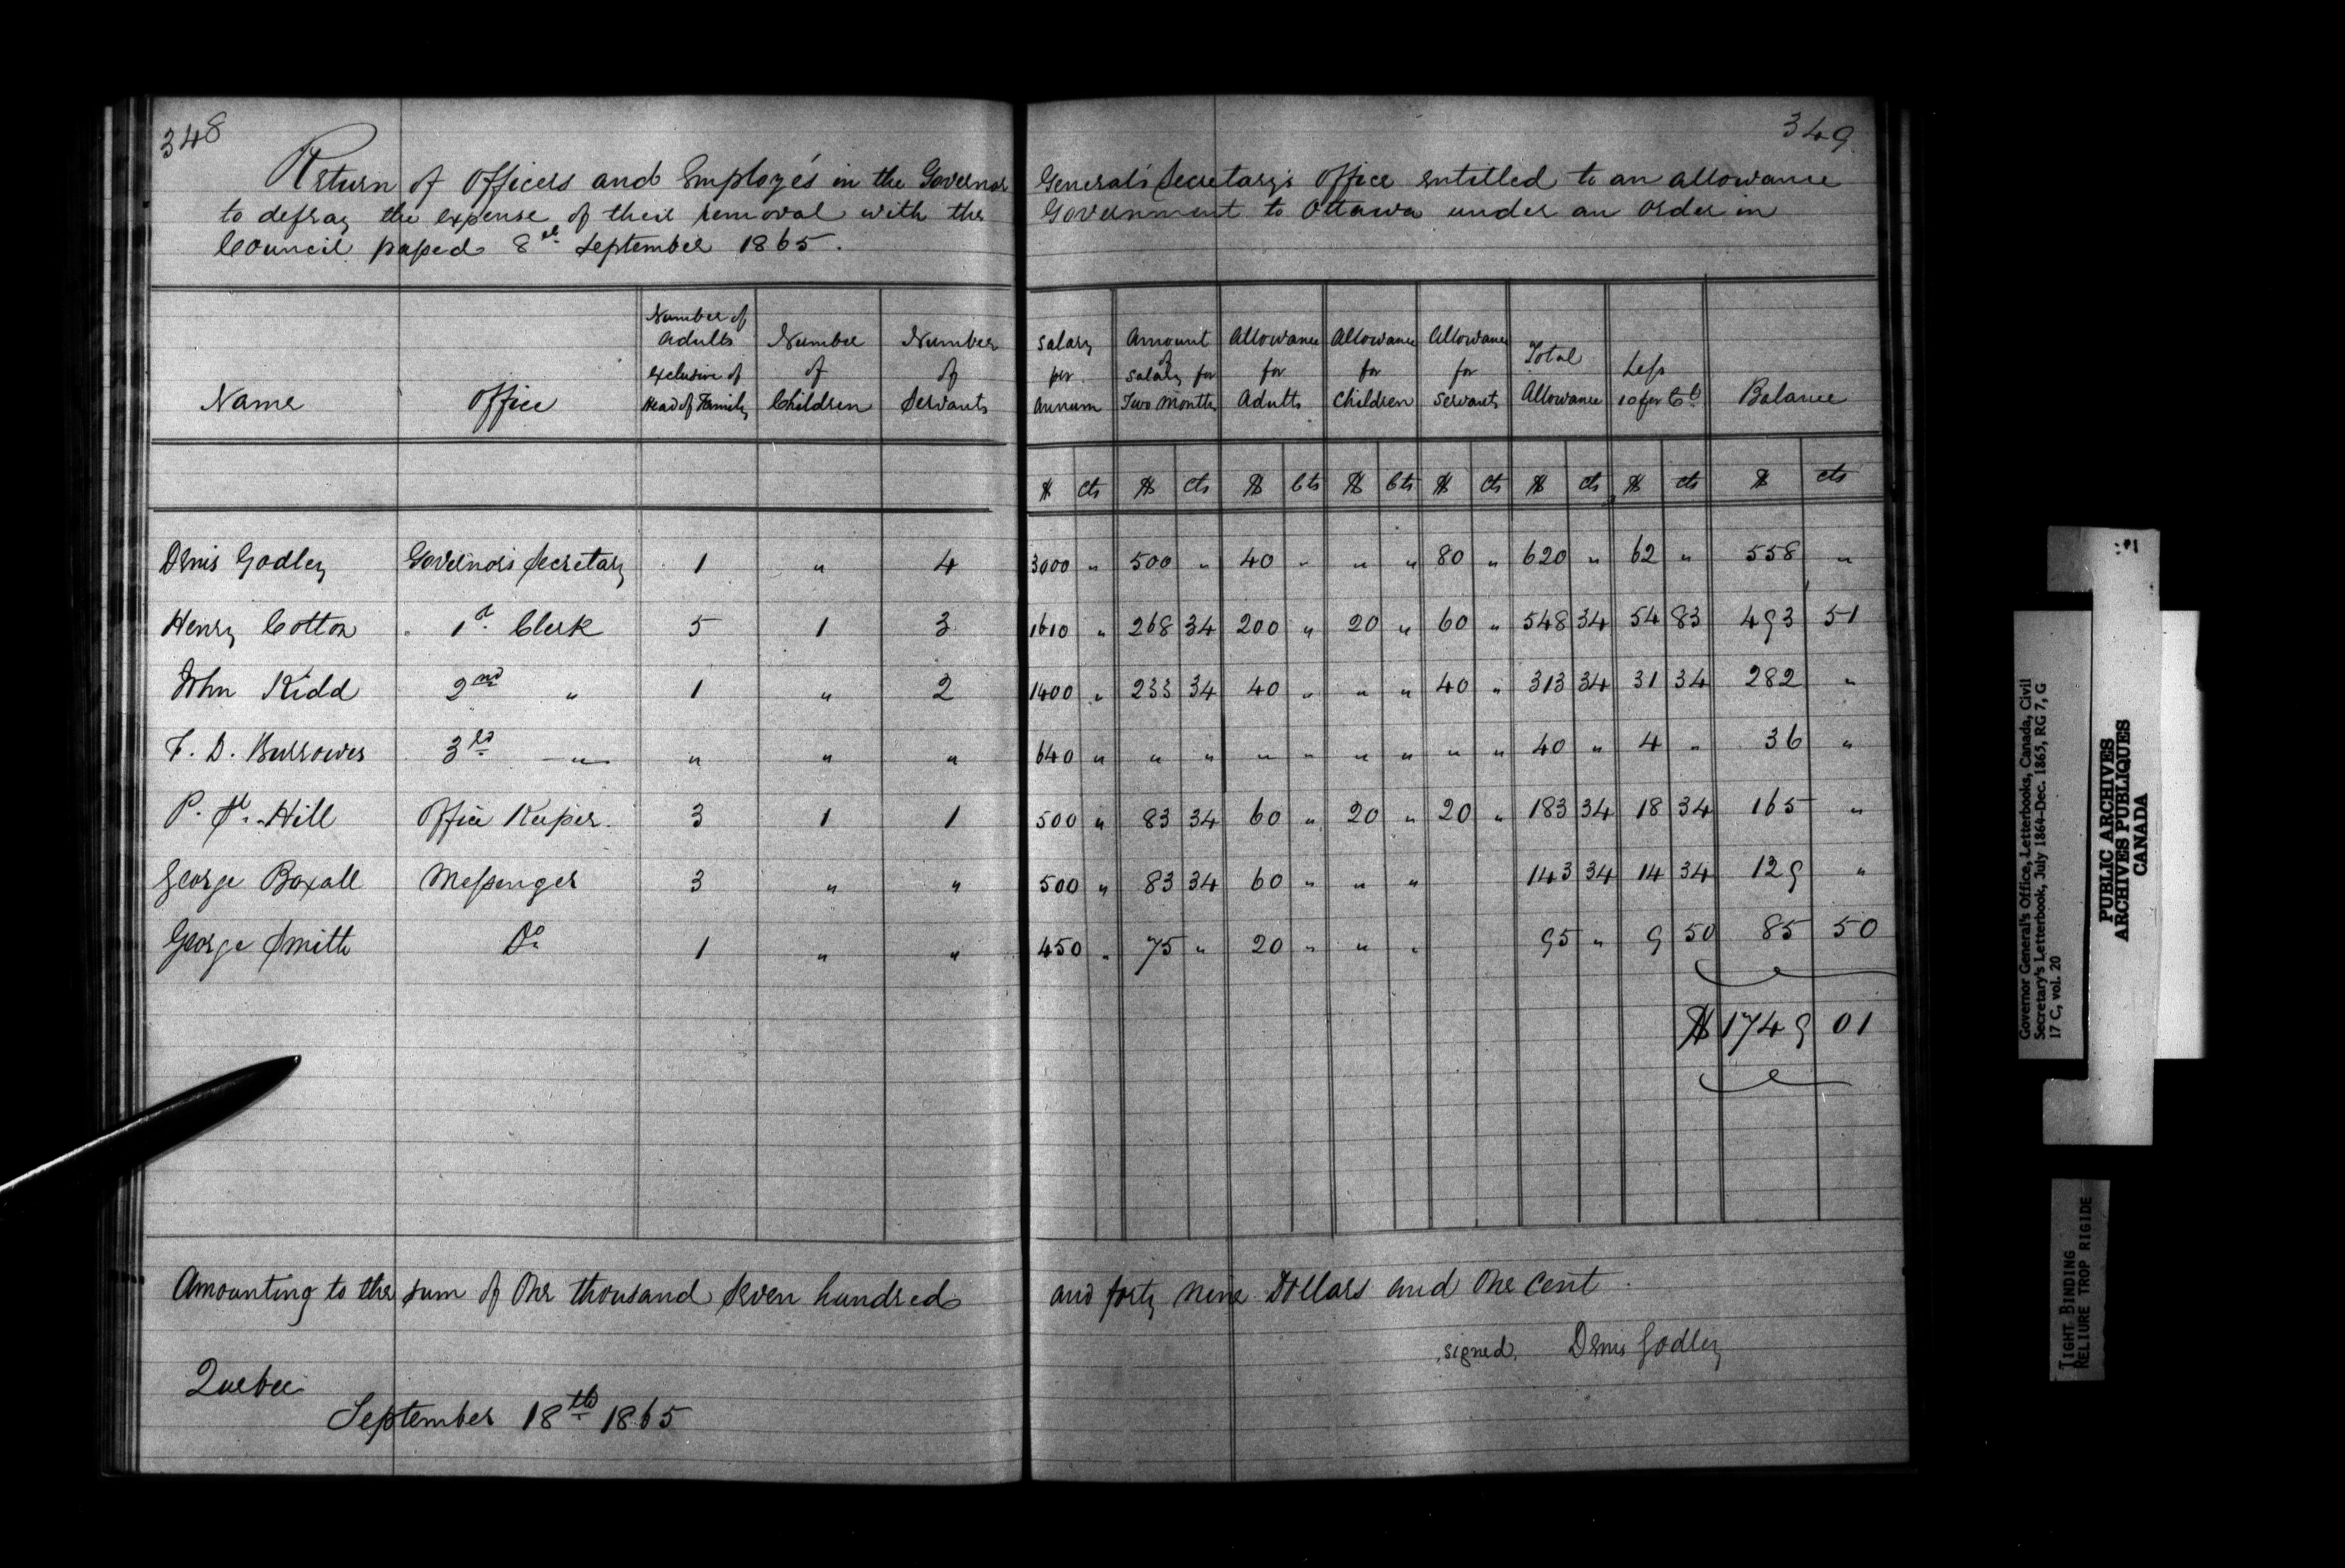 348
Return of Officers and Employés in the Governor
to defray the expense of their removal with the
Council passed 8th September 1865.
Name Office Number of Adults exclusive of Head of Family Number of Children Number of Servants
Denis Godley Governor's Secretary 1 " 4
Henry Cotton 1st Clerk 5 1 3
John Kidd 2nd " 1 " 2
F. D. Burrowes 3rd " " " "
P. Hill Office Keeper 3 1 1
George Boxall Messenger 3 " "
George Smith Do 1 " "
Amounting to the sum of One thousand Seven hundred
Quebec
September 18th 1865
349
General's Secretary's Office entitled to an allowance
Government to Ottawa under an order in
Salary per Annum Amount of Salary for Two Months Allowance for Adults Allowance for Children Allowance for Servants Total Allowance Less 10 per Ct Balance
$ cts $ cts $ Cts $ Cts $ cts $ cts $ cts $ cts
3000 " 500 " 40 " " " 80 " 620 " 62 " 558 "
1610 " 268 34 200 " 20 " 60 " 548 34 54 83 493 51
1400 " 233 34 40 " " " 40 " 313 34 31 34 282 "
640 " " " " " " " " " 40 " 4 " 36 "
500 " 83 34 60 " 20 " 20 " 183 34 18 34 165 "
500 " 83 34 60 " " " 143 34 14 34 129 "
450 " 75 " 20 " " " 95 " 9 50 85 50
$ 1749 01
and forty nine Dollars and One Cent.
signed, Denis Godley
Governor General's Office, Letterbooks, Canada, Civil
Secretary's Letterbook, July 1864-Dec. 1865, RG 7, G
17 C, vol. 20
PUBLIC ARCHIVES
ARCHIVES PUBLIQUES
CANADA
TIGHT BINDING
RELIURE TROP RIGIDE